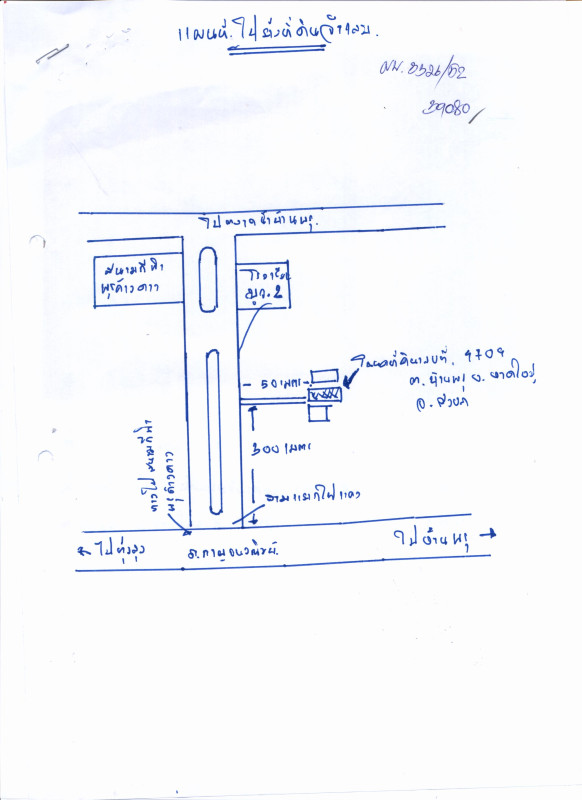 แผนที่ไปยังที่ดินจำนอง.
39080
ไปตลาดบ้านพรุ.
สนามกีฬา
พรุค้างคาว
มูจ.2
50 เมตร
โฉนดที่ดินเลขที่. 4709
ต. บ้านพรุ อ. หาดใหญ่
จ. สงขลา
300 เมตร
ทางไปสนามกีฬา
พรุค้างคาว
สามแยกไฟแดง
← ไปทุ่งลุง
ถ.กาญจนวณิชย์.
ไปบ้านพรุ →